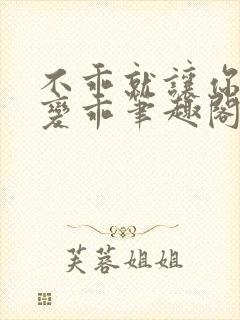 不乖就讓你
變乖筆趣閣
芙蓉姐姐